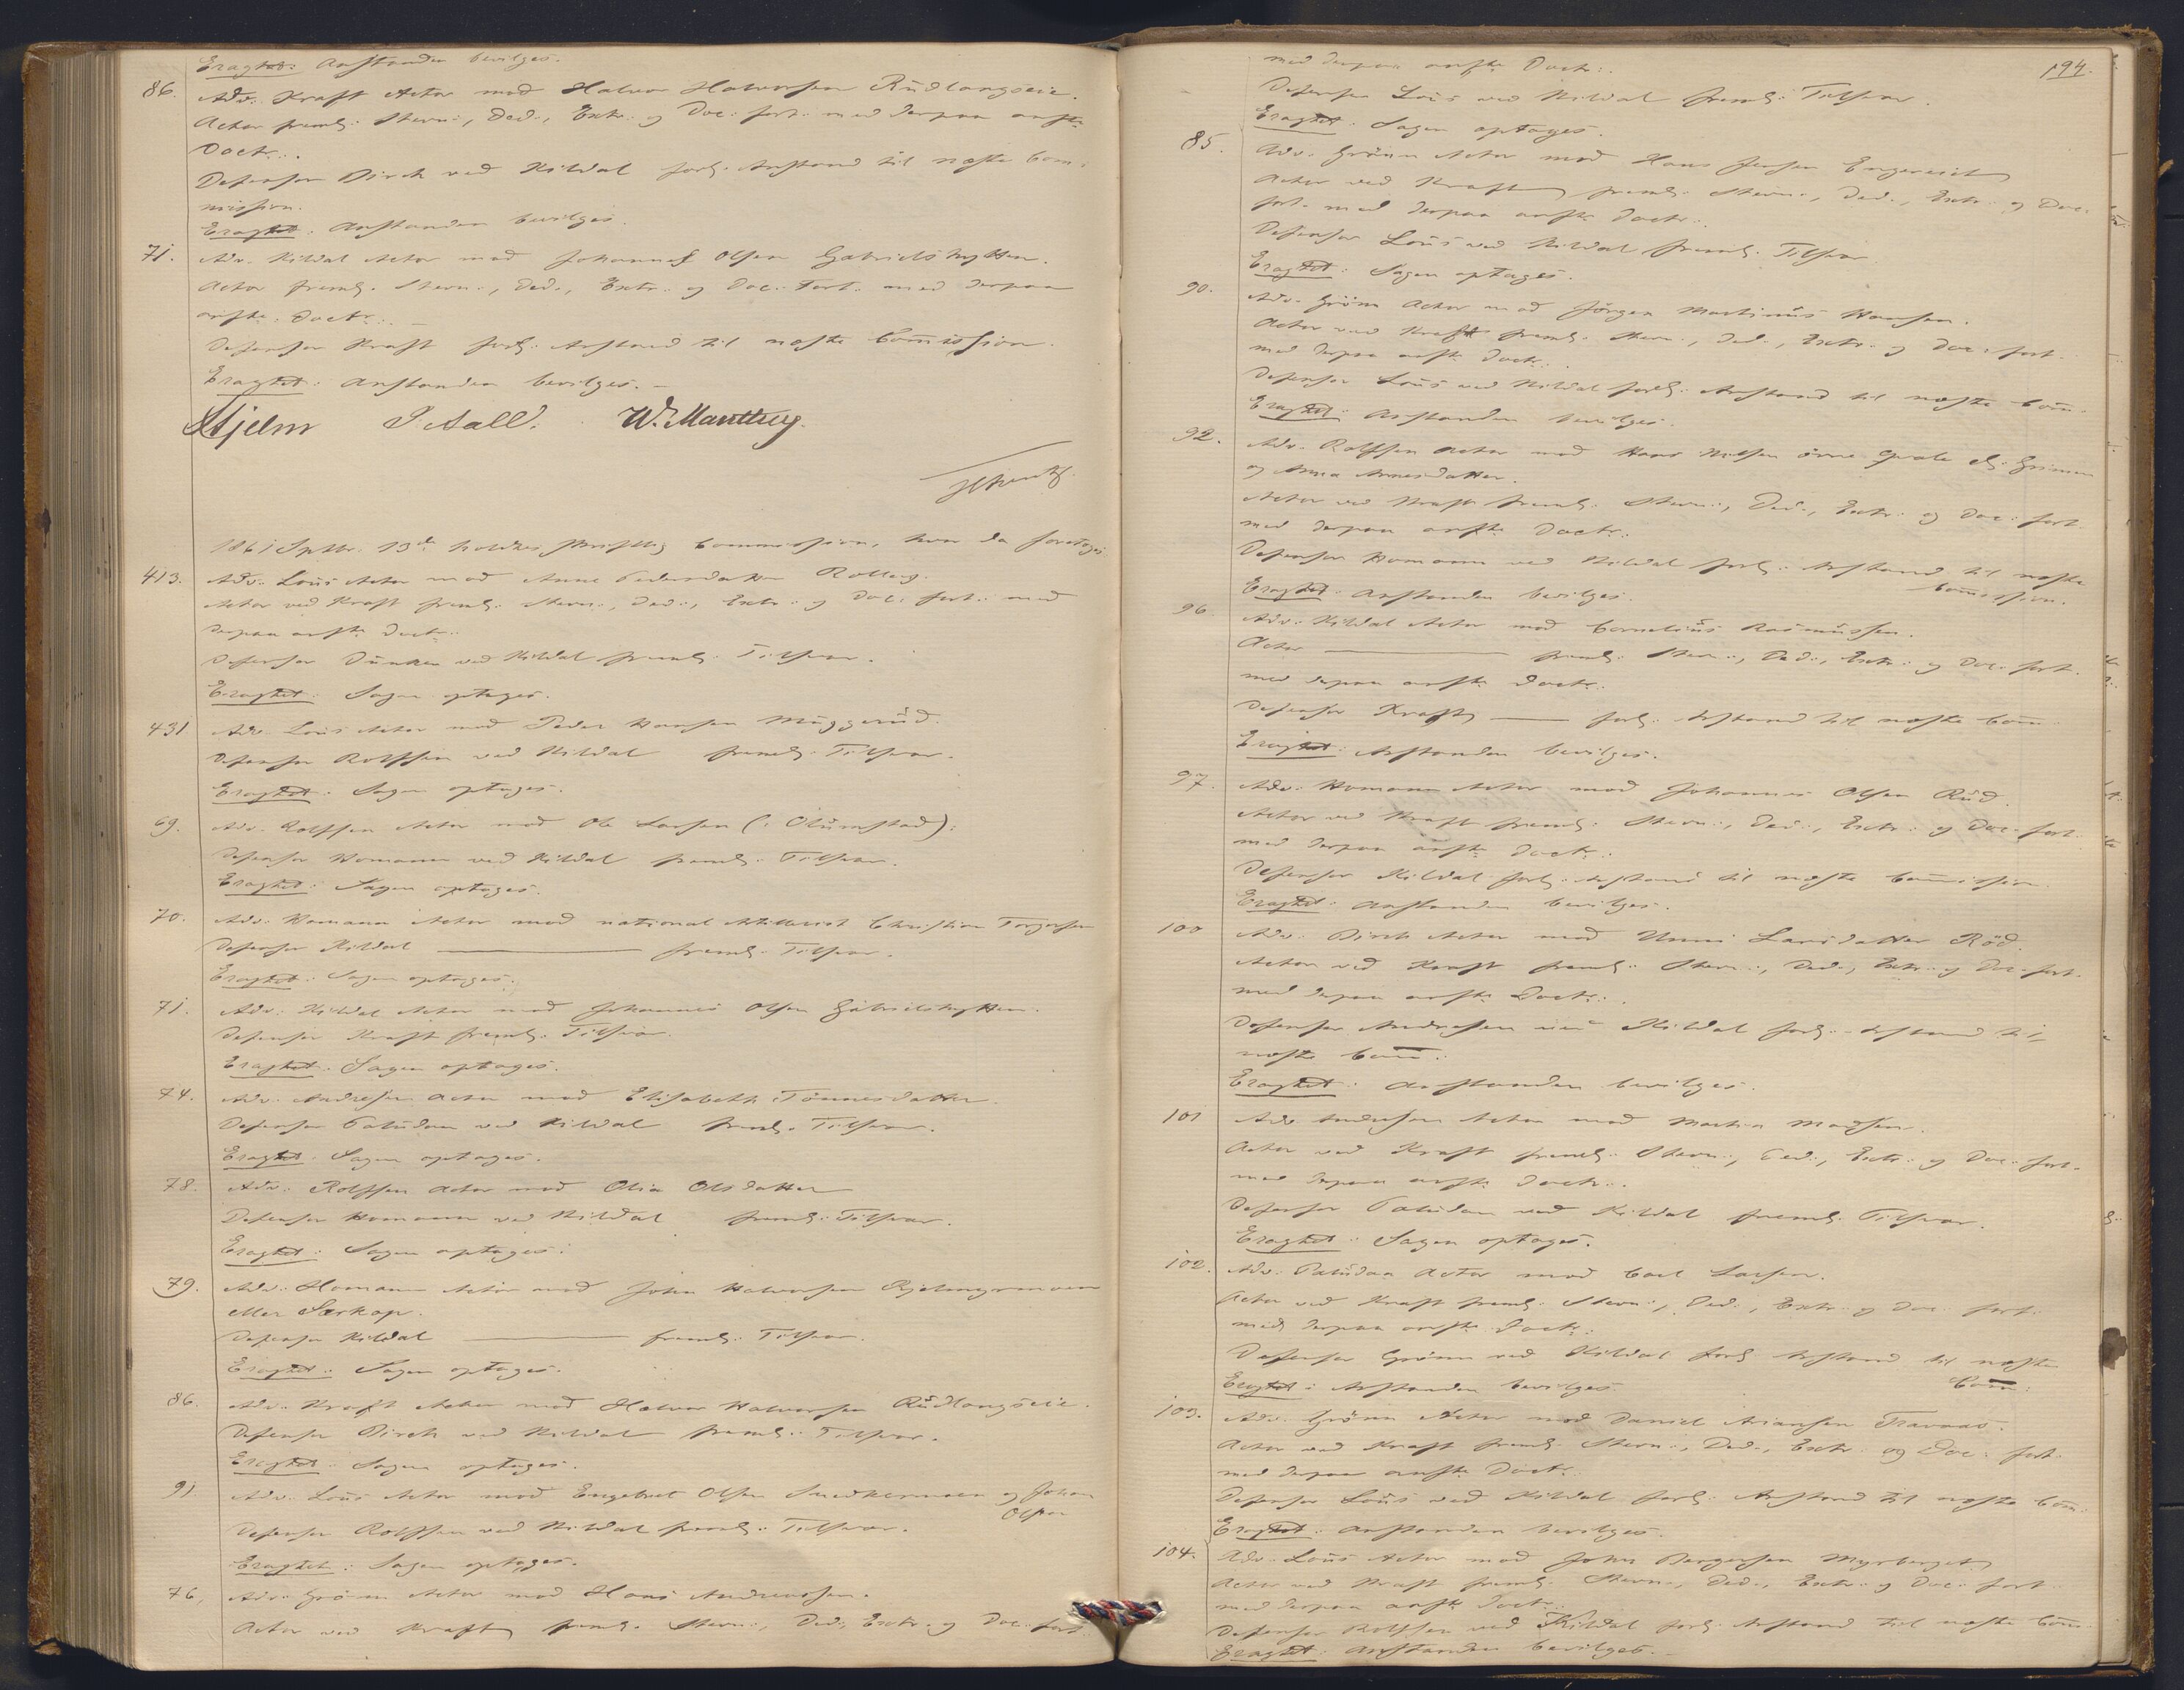 Eragtet: Anstanden bevilges.
86. Adv. Kraft Actor mod Halvor Halvorsen Rüdlangseie.
Actor freml: Stevn:, Ded:, Extr: og Doc: fort. med derpaa anfte
Doctr:.
Defensor Birch ved Kildal forl: Anstand til næste Com-
mission.
Eragtet: Anstanden bevilges.
71. Adv. Kildal Actor mod Johannes Olsen Gabrielshytten.
Actor freml. Stevn:, Ded:, Extr: og Doc: fort: med derpaa
anfte Doctr:. —
Defensor Kraft forl: Anstand til næste Com̄ission.
Eragtet: Anstanden bevilges. —
Hjelm P Aall. W. Manthey.
1861 Septbr. 13de holdtes skriftlig Commission, hvor da foretoges
413. Adv. Loüs Actor mod Anne Pedersdatter
Actor ved Kraft freml: Stevn:, Ded:, Extr: og Doc: fort: med
derpaa anfte Doctr:
Defensor Dünker ved Kildal freml: Tilsvar.
Eragtet: Sagen optages.
431 Adv. Loüs Actor mod Peder Hansen Müggerüd.
Defensor Rolfsen ved Kildal freml: Tilsvar.
Eragtet: Sagen optages.
69. Adv. Rolfsen Actor mod Ole Larsen (: Olümstad):
Defensor Homann ved Kildal freml: Tilsvar.
Eragtet: Sagen optages.
70. Adv. Homann Actor mod national Artillerist Christian Torgersen
Defensor Kildal ——— freml: Tilsvar.
Eragtet: Sagen optages.
71. Adv. Kildal Actor mod Johannes Olsen Gabrielshytten.
Defensor Kraft freml: Tilsvar.
Eragtet: Sagen optages.
74. Adv. Andresen Actor mod Elisabeth Tönnesdatter.
Defensor Palüdan ved Kildal freml: Tilsvar.
Eragtet: Sagen optages.
78. Adv. Rolfsen Actor mod Olia Olsdatter
Defensor Homann ved Kildal freml: Tilsvar.
Eragtet: Sagen optages.
79. Adv: Homann Actor mod John Halvorsen
eller Sarkop.
Defensor Kildal ——— freml: Tilsvar.
Eragtet: Sagen optages.
86. Adv. Kraft Actor mod Halvor Halvorsen Rüdlangseie.
Defensor Birch ved Kildal freml: Tilsvar.
Eragtet: Sagen optages.
91 Adv. Loüs Actor mod Engebret Olsen og Johan
Olsen
Defensor Rolfsen ved Kildal freml: Tilsvar.
Eragtet: Sagen optages.
76, Adv. Grönn Actor mod Hans Andreassen.
Actor ved Kraft freml. Stevn:, Ded:, Extr: og Doc: fort.
194.
med derpaa anfte Doctr:.
Defensor Loüs ved Kildal freml: Tilsvar.
Eragtet: Sagen optages.
85. Adv. Grönn Actor mod Hans Jensen
Actor ved Kraft freml: Stevn:, Ded:, Extr: og Doc:
fort. med derpaa anfte Doctr:.
Defensor Loüs ved Kildal freml: Tilsvar
Eragtet: Sagen optages.
90. Adv. Grönn Actor mod Jörgen Martinüs Hansen.
Actor ved Kraft freml: Stevn:, Ded:, Extr: og Doc: fort.
med derpaa anfte Doctr:.
Defensor Loüs ved Kildal forl: Anstand til næste Com̄.
Eragtet: Anstanden bevilges.
92. Adv. Rolfsen Actor mod Hans Nilsen
og Anna Arnesdatter.
Actor ved Kraft freml: Stevn:, Ded:, Extr: og Doc: fort.
med derpaa anfte Doctr:.
Defensor Homann ved Kildal forl: Anstand til næste
Com̄ission.
Eragtet: Anstanden bevilges.
96. Adv. Kildal Actor mod Cornelius Rasmüssen.
Actor ——— freml: Stevn:, Ded:, Extr: og Doc: fort.
med derpaa anfte Doctr:.
Defensor Kraft —— forl: Anstand til næste Com̄
Eragtet: Anstanden bevilges.
97. Adv. Homann Actor mod Johannes Olsen Rüd.
Actor ved Kraft freml: Stevn:, Ded:, Extr: og Doc: fort.
med derpaa anfte Doctr:.
Defensor Kildal forl: Anstand til næste Com̄ission.
Eragtet: Anstanden bevilges.
100 Adv. Birch Actor mod Unni Larsdatter Röd.
Actor ved Kraft freml: Stevn:, Ded:, Extr: og Doc: fort.
med derpaa anfte Doctr:.
Defensor Andresen ved Kildal forl: Anstand til
næste Com̄:.
Eragtet: Anstanden bevilges.
101 Adv. Andresen Actor mod Martin Madsen.
Actor ved Kraft freml: Stevn:, Ded:, Extr: og Doc: fort.
med derpaa anfte Doctr:.
Defensor Palüdan ved Kildal freml: Tilsvar.
Eragtet: Sagen optages.
102. Adv. Palüdan Actor mod Carl Larsen.
Actor ved Kraft freml: Stevn:, Ded:, Extr: og Doc: fort:
med derpaa anfte Doctr:
Defensor Grönn ved Kildal forl: Anstand til næste
Com̄:
Eragtet: Anstanden bevilges.
103. Adv. Grönn Actor mod Daniel Travaas.
Actor ved Kraft freml: Stevn:, Ded:, Extr: og Doc: fort.
med derpaa anfte Doctr:
Defensor Loüs ved Kildal forl: Anstand til næste Com̄:
Eragtet: Anstanden bevilges.
104. Adv. Loüs Actor mod John Bergersen Myrberget
Actor ved Kraft freml: Stevn:, Ded:, Extr: og Doc: fort.
med derpaa anfte Doctr:.
Defensor Rolfsen ved Kildal forl: Anstand til næste Com̄
Eragtet: Anstanden bevilges. —